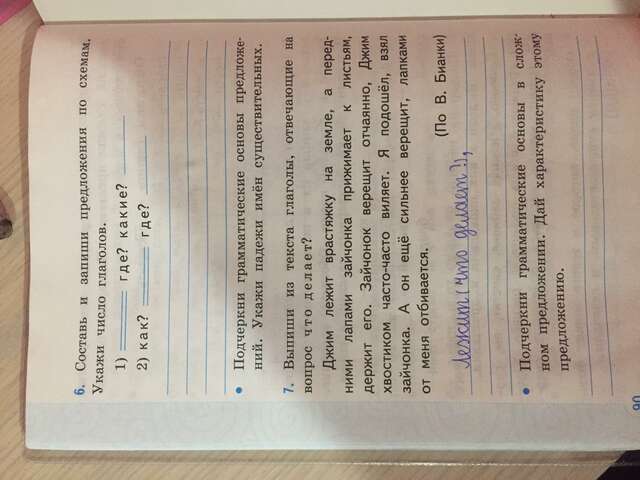 6. Составь и запиши предложения по схемам.
Укажи число глаголов.
1) где? какие?
2) как? где?
• Подчеркни грамматические основы предложе-
ний. Укажи падежи имён существительных.
7. Выпиши из текста глаголы, отвечающие на
вопрос что делает?
Джим лежит врастяжку на земле, а перед-
ними лапами зайчонка прижимает к листьям,
держит его. Зайчонок верещит отчаянно, Джим
хвостиком часто-часто виляет. Я подошёл, взял
зайчонка. А он ещё сильнее верещит, лапками
от меня отбивается.
(По В. Бианки)
Лежит (что делает?),
• Подчеркни грамматические основы в слож-
ном предложении. Дай характеристику этому
предложению.
90